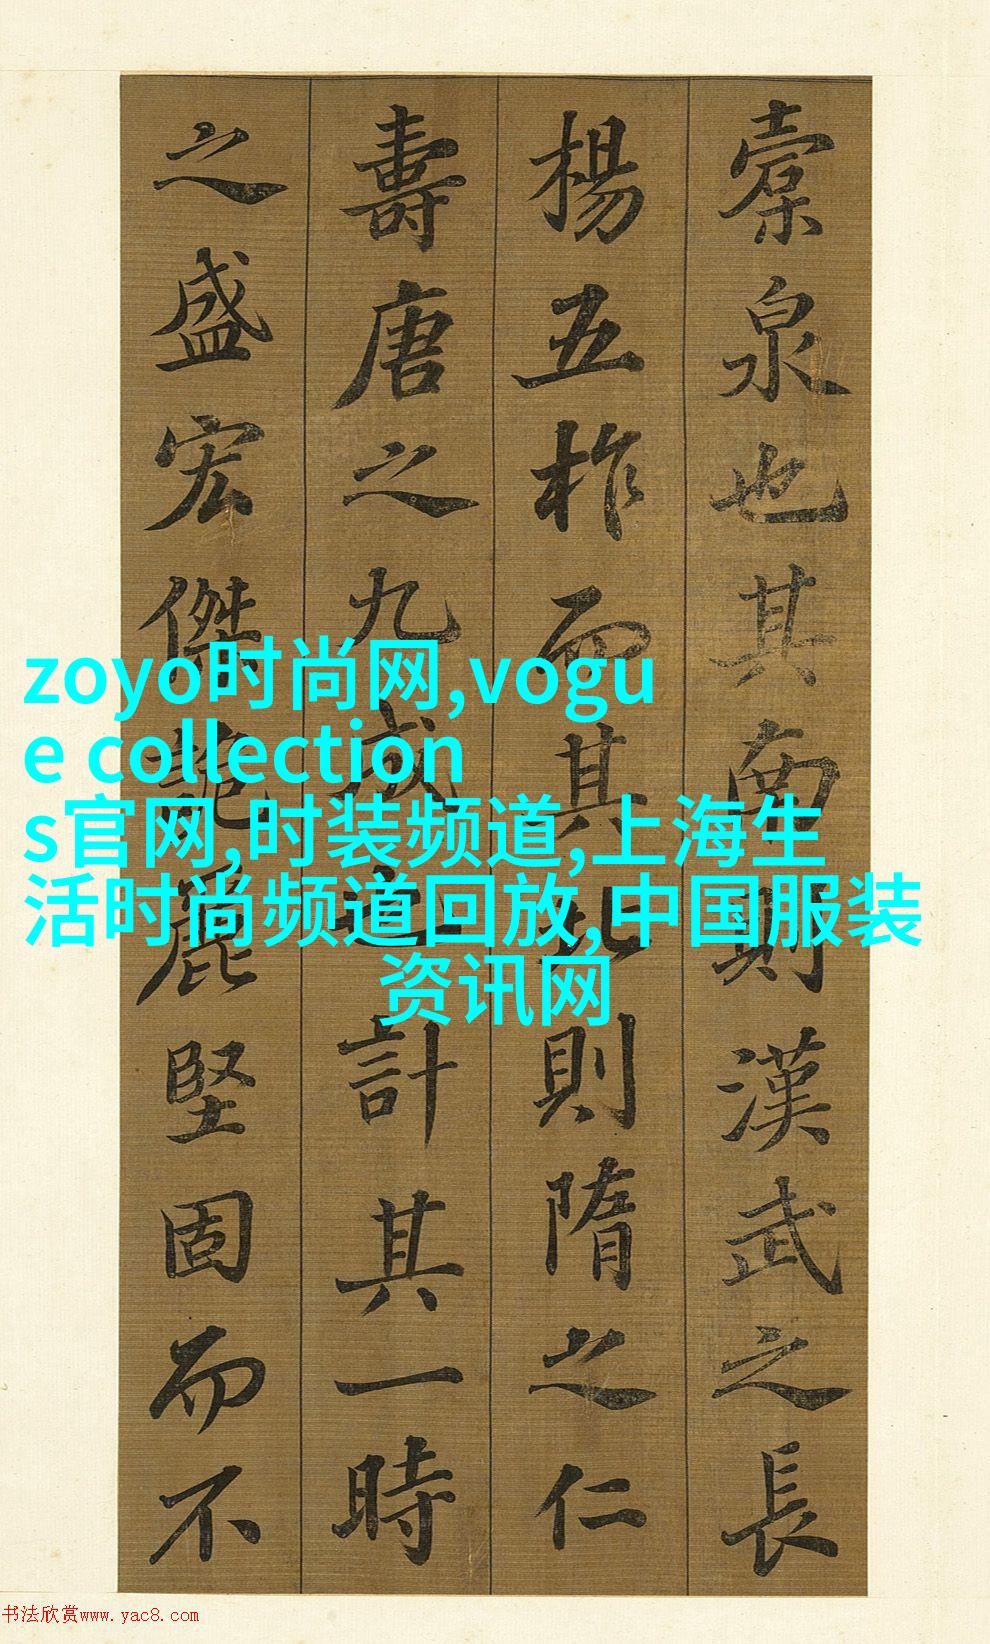 橐泉也其南則漢武之長
楊五柞而其北則隋之仁
壽唐之九成也計其一時
之盛宏傑詭麗堅固而不
zoyo时尚网,vogu
e collection
s官网,时装频道,上海生
活时尚频道回放,中国服装
资讯网
书法欣赏www.yac8.com